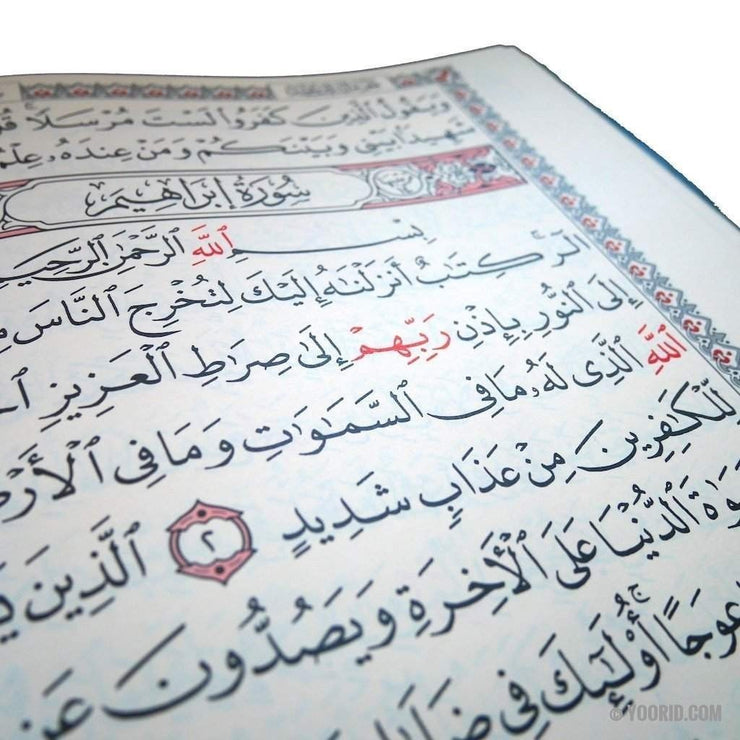 وَيَقُولُ الَّذِينَ كَفَرُوا لَسْتَ مُرْسَلًا ۚ
شَهِيدًا بَيْنِي وَبَيْنَكُمْ وَمَنْ عِندَهُ عِلْمُ
سُورَةُ إِبْرَاهِيمَ
بِسْمِ اللَّهِ الرَّحْمَٰنِ الرَّحِيمِ
الٓر كِتَابٌ أَنزَلْنَاهُ إِلَيْكَ لِتُخْرِجَ النَّاسَ
إِلَى النُّورِ بِإِذْنِ رَبِّهِمْ إِلَىٰ صِرَاطِ الْعَزِيزِ
اللَّهِ الَّذِي لَهُ مَا فِي السَّمَٰوَٰتِ وَمَا فِي الْأَرْضِ
لِّلْكَٰفِرِينَ مِنْ عَذَابٍ شَدِيدٍ ٢ الَّذِينَ
الدُّنْيَا عَلَى الْآخِرَةِ وَيَصُدُّونَ عَن
عِوَجًا ۚ أُولَٰئِكَ فِي
© YOORID.COM